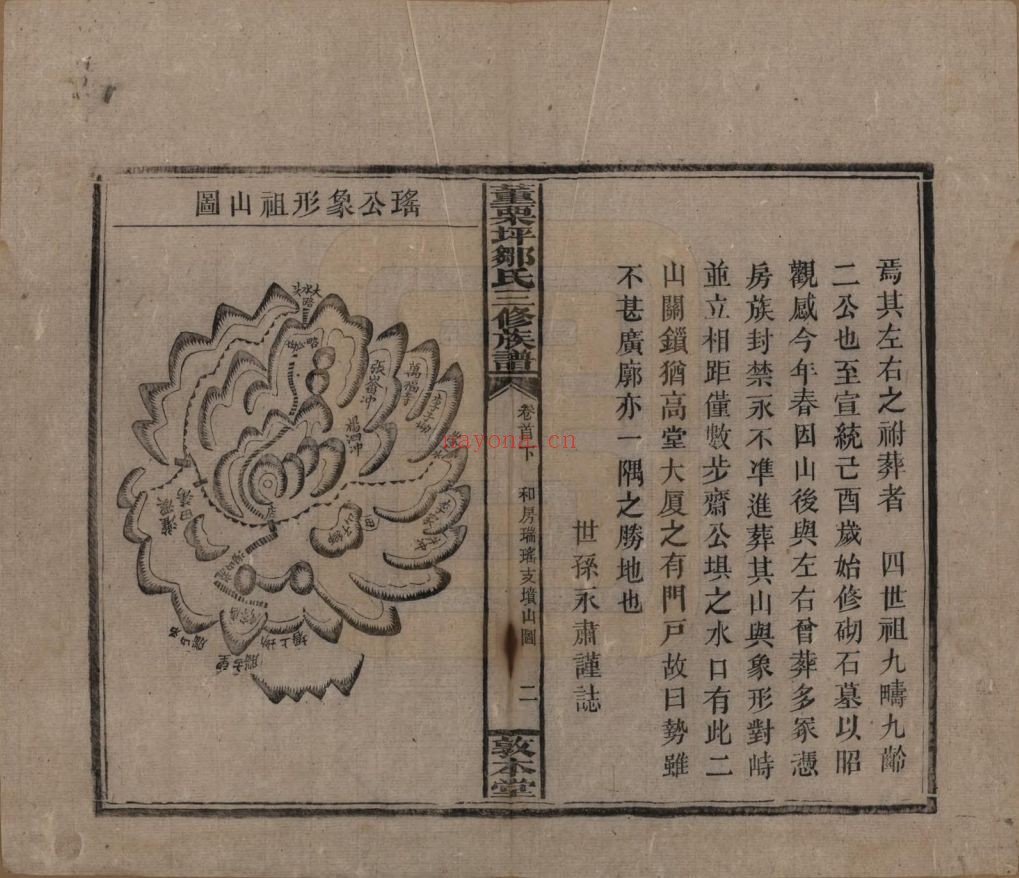 焉其左右之祔葬者　四世祖九疇九齡
二公也至宣統己酉歲始修砌石墓以昭
觀感今年春因山後與左右曾葬多冢憑
房族封禁永不准進葬其山與象形對峙
並立相距僅數步齋公垻之水口有此二
山關鎖猶高堂大厦之有門戸故曰勢雖
不甚廣廓亦一隅之勝地也
世孫永肅謹誌
董栗坪鄒氏三修族譜
卷首下　和房瑞瑤支墳山圖　二
敦本堂
瑤公象形祖山圖
大路
水
張崙冲
楊泗冲
萬福
nayona.cn